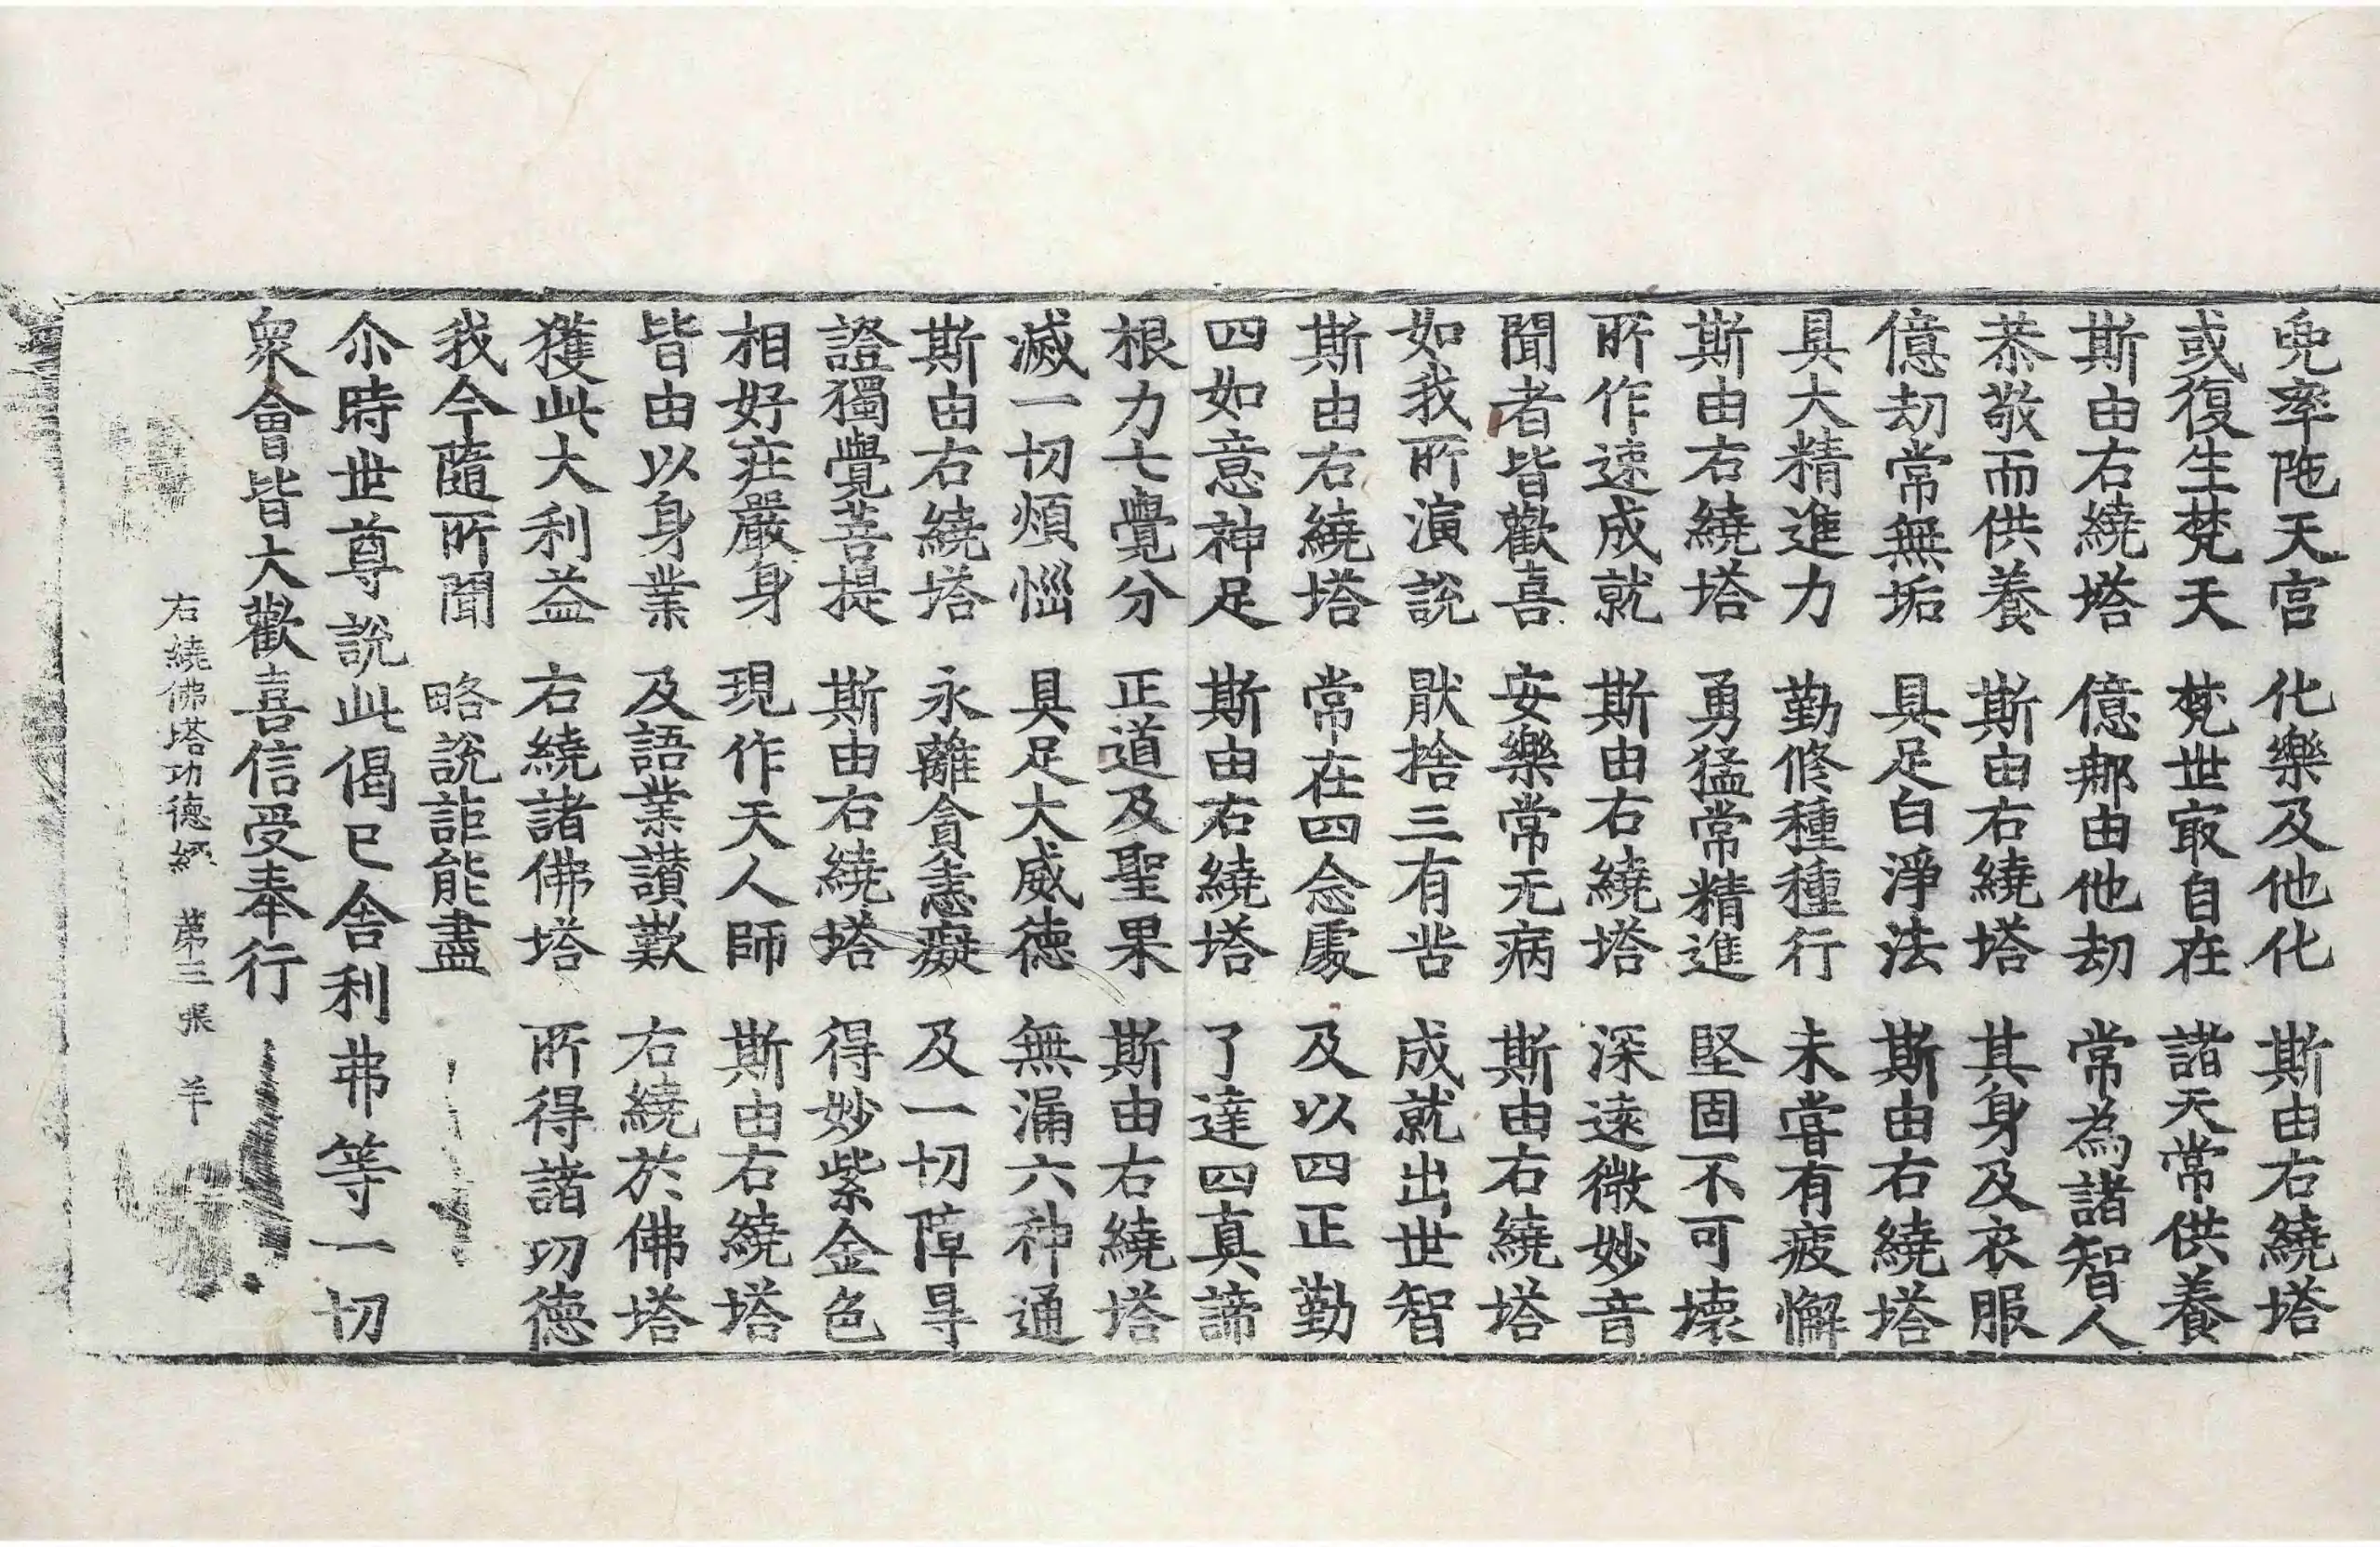 兜率陁天宮　化樂及他化　斯由右繞塔
或復生梵天　梵世㝡自在　諸天常供養
斯由右繞塔　億那由他劫　常為諸智人
恭敬而供養　斯由右繞塔　其身及衣服
億劫常無垢　具足白淨法　斯由右繞塔
具大精進力　勤修種種行　未嘗有疲懈
斯由右繞塔　勇猛常精進　堅固不可壞
所作速成就　斯由右繞塔　深遠微妙音
聞者皆歡喜　安樂常无病　斯由右繞塔
如我所演說　猒捨三有苦　成就出世智
斯由右繞塔　常在四念處　及以四正勤
四如意神足　斯由右繞塔　了達四真諦
根力七覺分　正道及聖果　斯由右繞塔
滅一切煩惱　具足大威德　無漏六神通
斯由右繞塔　永離貪恚癡　及一切障㝵
證獨覺菩提　斯由右繞塔　得妙紫金色
相好莊嚴身　現作天人師　斯由右繞塔
皆由以身業　及語業讚歎　右繞於佛塔
獲此大利益　右繞諸佛塔　所得諸功德
我今隨所聞　略說詎能盡
尒時世尊說此偈已舍利弗等一切
衆會皆大歡喜信受奉行
右繞佛塔功德經　第三張　羊